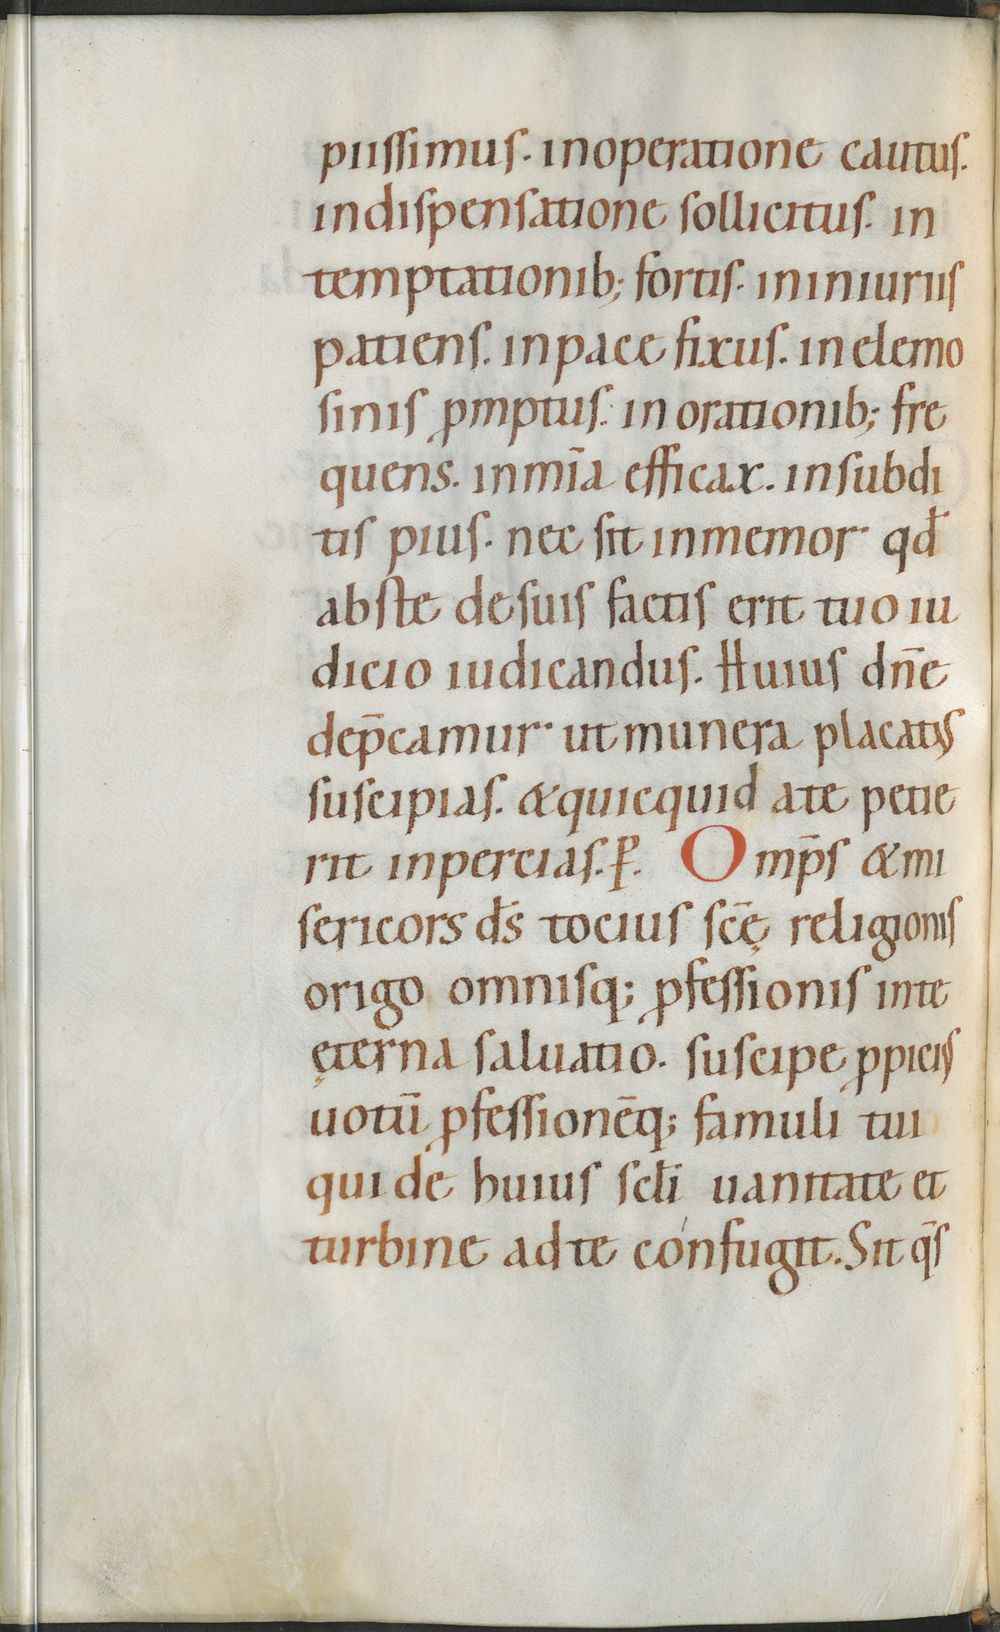 piissimus. inoperatione cautus.
indispensatione sollicitus. in
temptationib; fortis. ininiuriis
patiens. inpace fixus. inelemo
sinis ꝓmptus. in orationib; fre
quens. inmīa efficax. insubdi
tis pius. nec sit inmemor qđ
abste desuis factis erit tuo iu
dicio iudicandus. Huius dn̄e
dep̄camur ut munera placatus
suscipias. &quicquid ate petie
rit inpercias. P. Omp̄s &mi
sericors d̄s tocius sc̄ę religionis
origo omnisq; ꝓfessionis inte
ęterna saluatio. suscipe ꝓpicius
uotū ꝓfessionēq; famuli tui
qui de huius sēcli uanitate et
turbine adte confugit. Sit q̄s